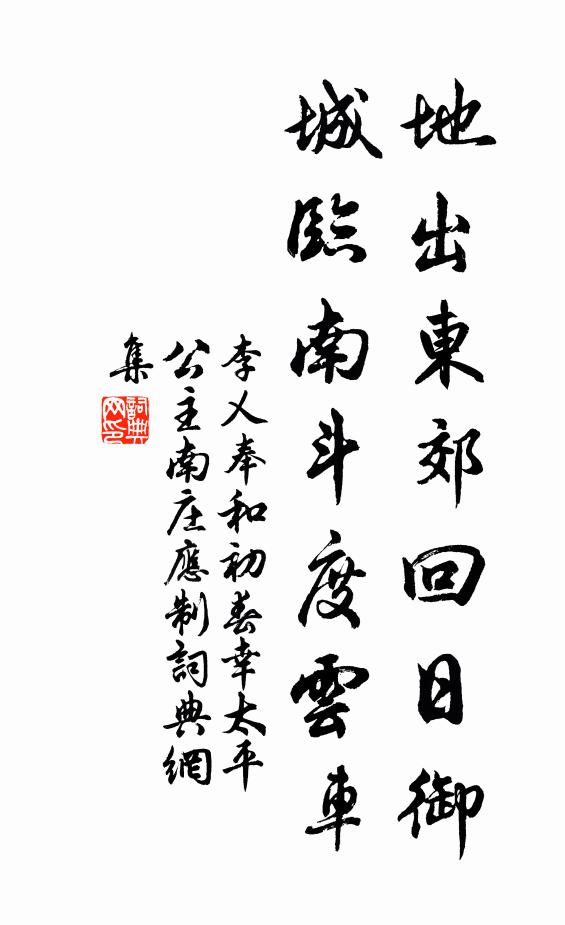 地出東郊回日御
城臨南斗度雲車
李乂奉和初春幸太平
公主南庄應制詞典網
集
詞典
网印